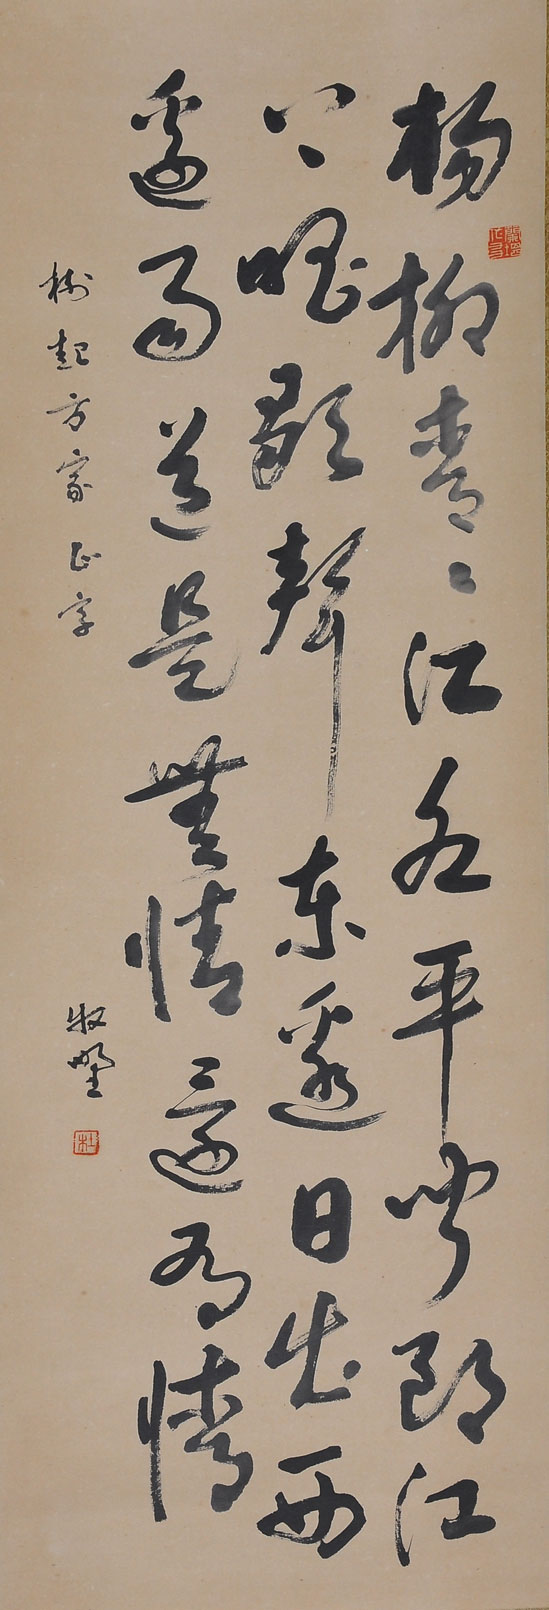 楊柳青〻江水平聞郎江
上唱歌聲東邊日出西
邊雨道是無情還有情
樹起方家正字
牧野